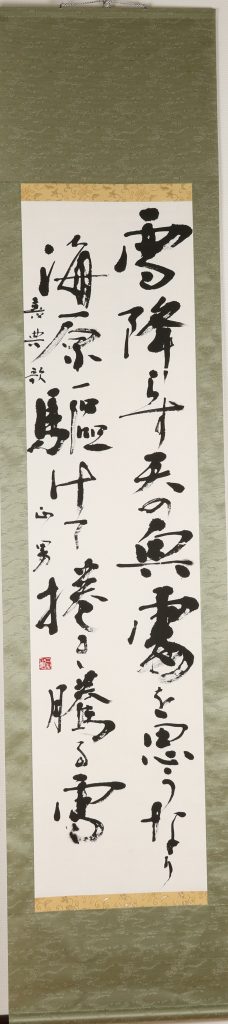 雪降らす天の奥處を思うなり
海原驅けて捲き騰る雪
喜典歌 正男